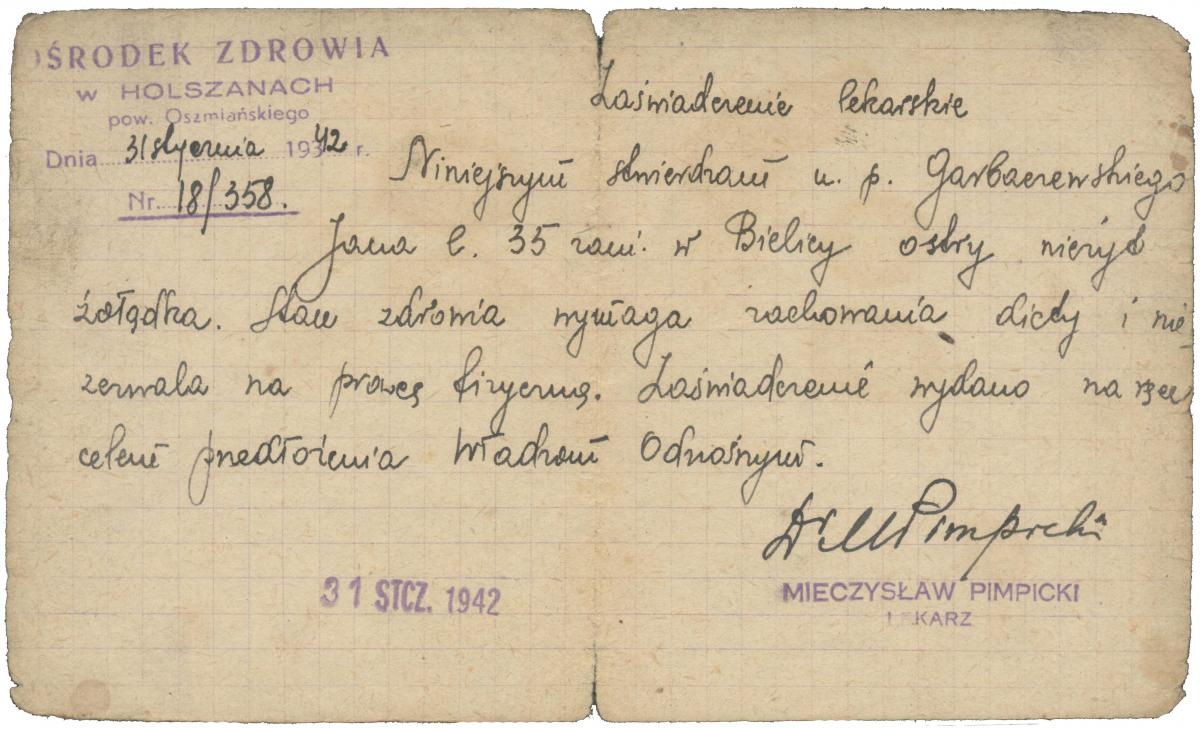 OŚRODEK ZDROWIA
w HOLSZANACH
pow. Oszmiańskiego
Dnia 31 stycznia 1942 r.
Nr. 18/358.
Zaświadczenie lekarskie
Niniejszym stwierdzam u. p. Garbaczewskiego
Jana l. 35 zam. w Bielicy ostry nieżyt
żołądka. Stan zdrowia wymaga zachowania diety i nie
zezwala na pracę fizyczną. Zaświadczenie wydano na
celem przedłożenia Władzom Odnośnym.
Dr M Pimpicki
31 STCZ. 1942
MIECZYSŁAW PIMPICKI
LEKARZ